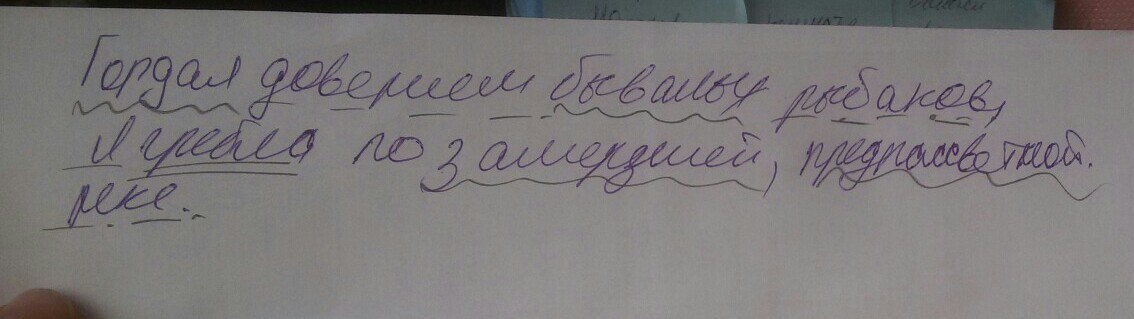 Гордая доверием бывалых рыбаков,
я гребла по замерзшей, предрассветной.
реке.